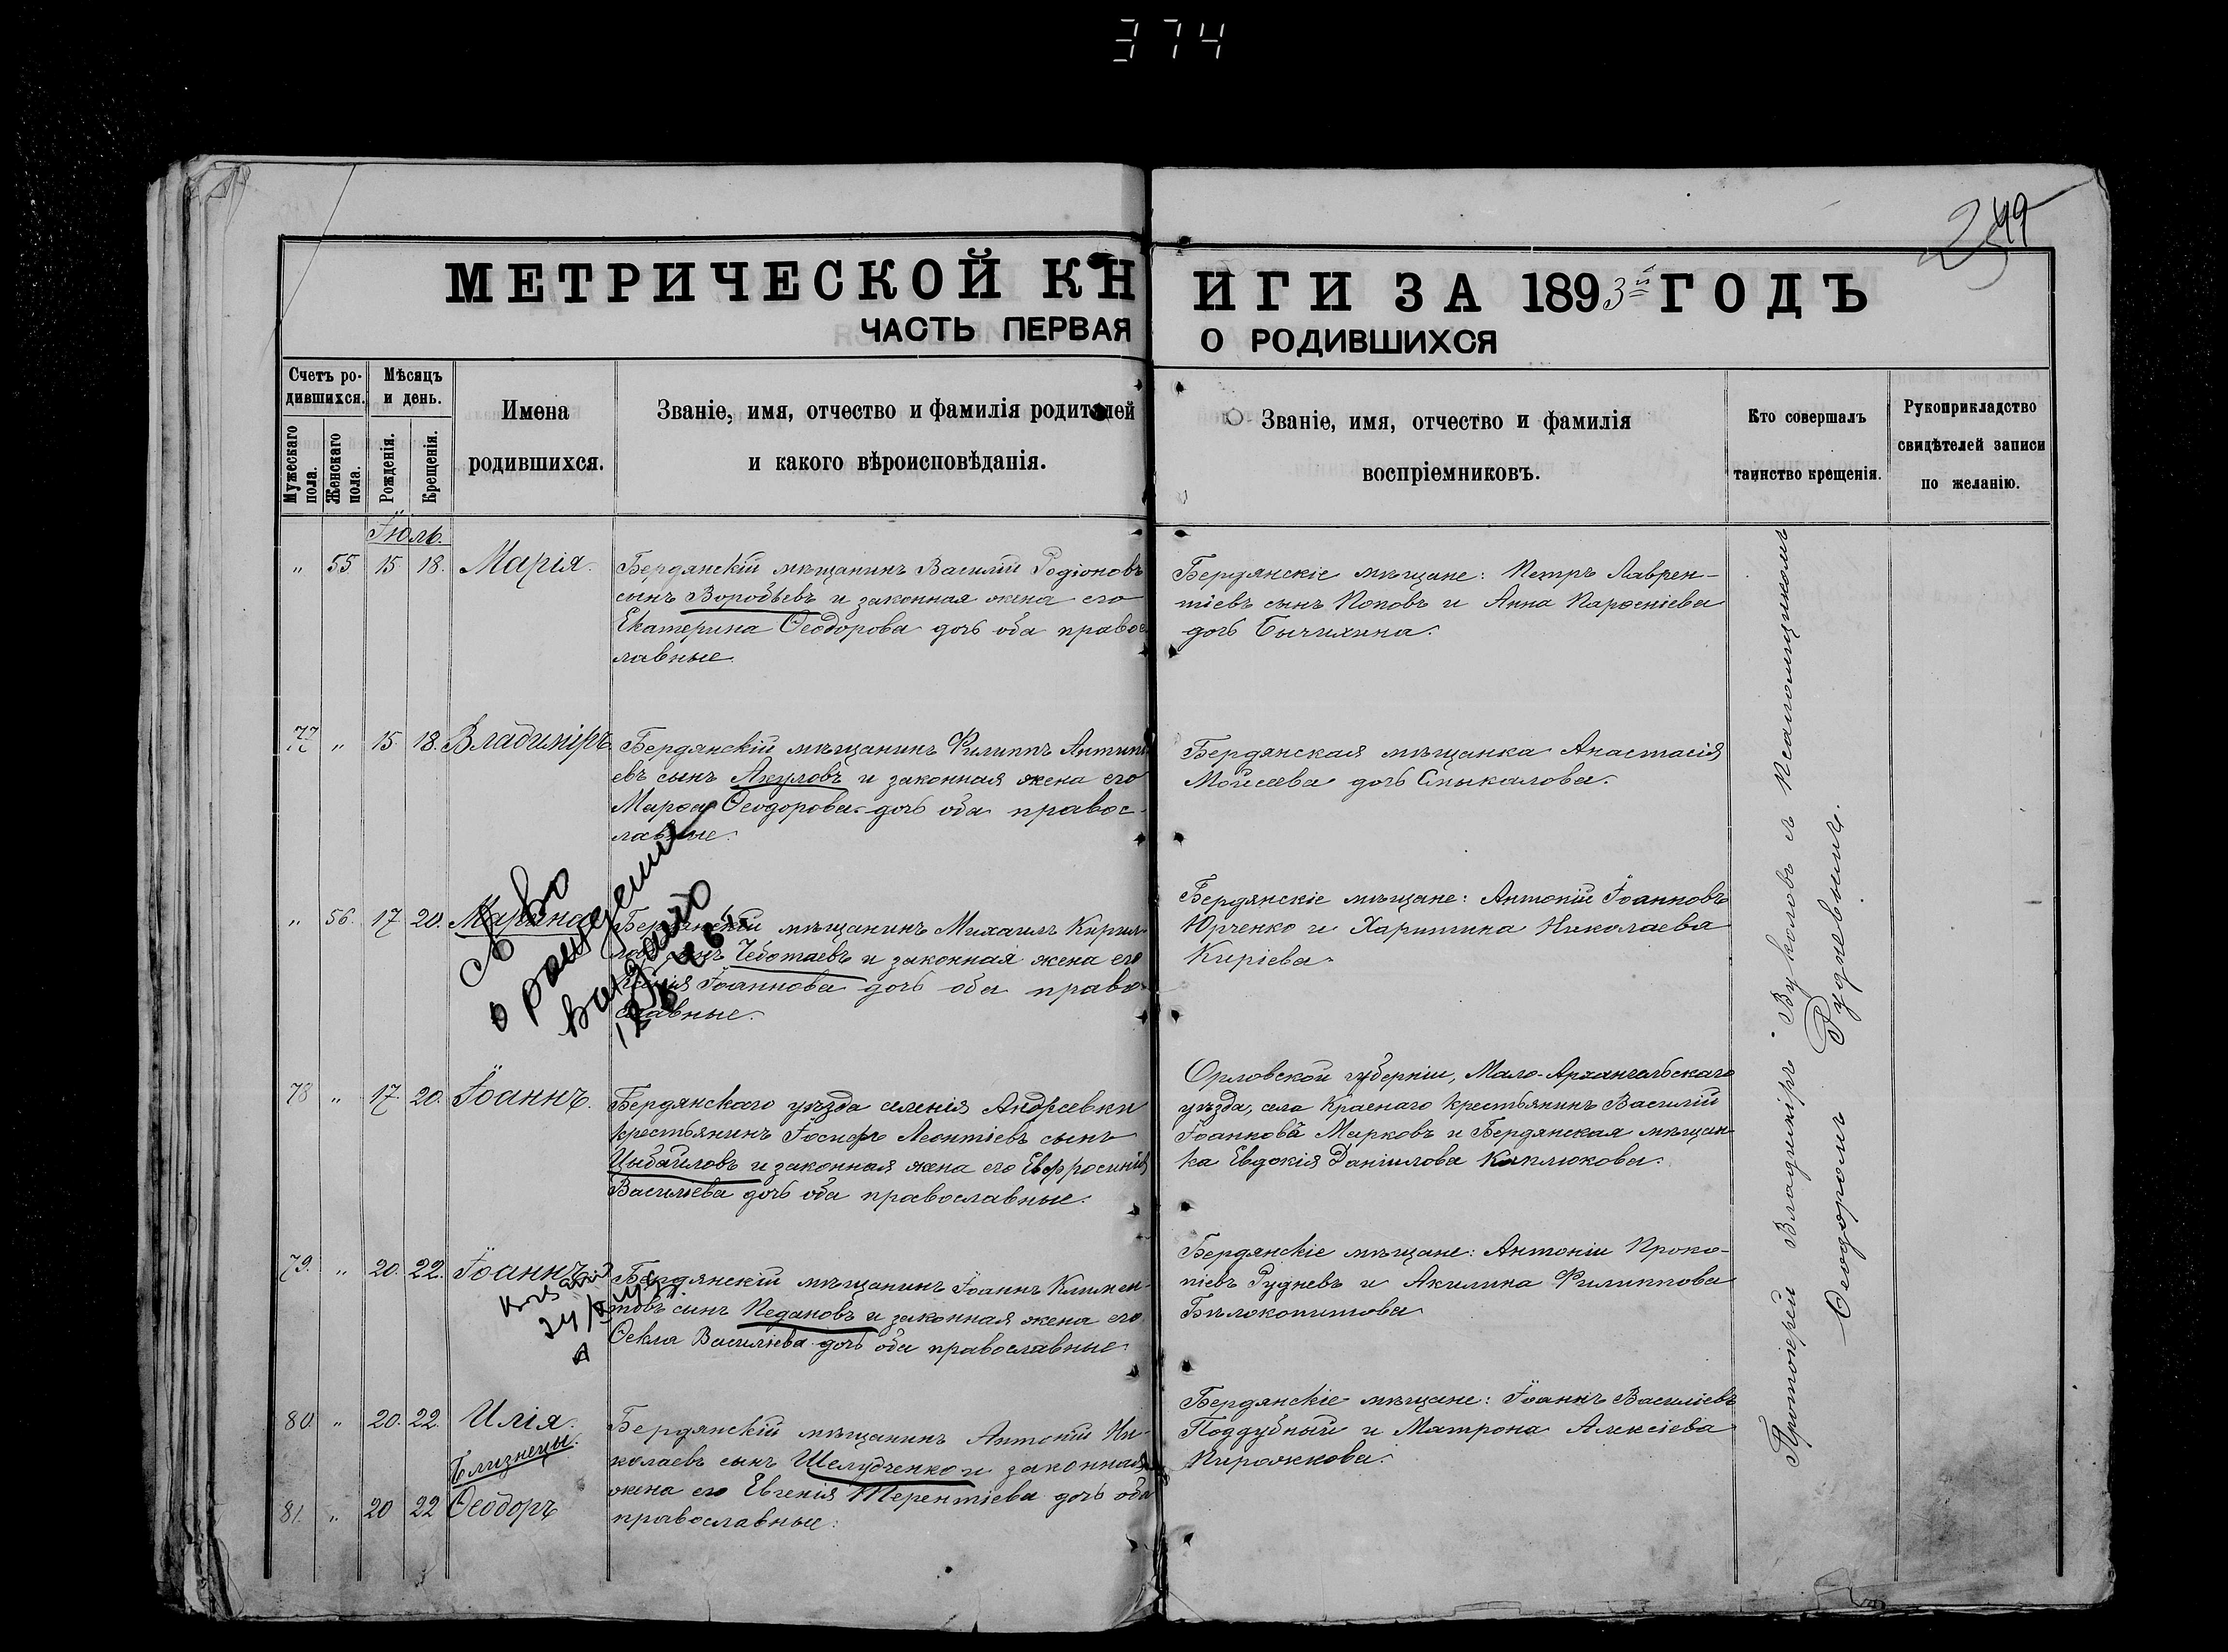 374
249
МЕТРИЧЕСКОЙ КНИГИ ЗА 1893й ГОДЪ
ЧАСТЬ ПЕРВАЯ О РОДИВШИХСЯ
Счетъ ро-
дившихся.
Мужескаго
пола.
Женскаго
пола.
Мѣсяцъ
и день.
Рожденія.
Крещенія.
Имена
родившихся.
Званіе, имя, отчество и фамилія родителей
и какого вѣроисповѣданія.
Званіе, имя, отчество и фамилія
воспріемниковъ.
Кто совершалъ
таинство крещенія.
Рукоприкладство
свидѣтелей записи
по желанію.
Іюль.
" 55 15 18. Марія.
Бердянскій мѣщанинъ Василій Родіоновъ
сынъ Воробьевъ и законная жена его
Екатерина Ѳеодорова дочь оба правос
лавные.
Бердянскіе мѣщане: Петръ Лаврен-
тіевъ сынъ Поповъ и Анна Парѳеніева
дочь Бычихина.
77 " 15 18. Владиміръ
Бердянскій мѣщанинъ Филиппъ Антипі
евъ сынъ Акуловъ и законная жена его
Марѳа Ѳеодорова дочь оба правос-
лавные.
Бердянская мѣщанка Анастасія
Мойсеева дочь Смыкалова.
" 56. 17. 20. Марина
Бердянскій мѣщанинъ Михаилъ Кирил-
ловъ сынъ Чеботаевъ и законная жена его
Іоаннова дочь оба право-
славные.
Бердянскіе мѣщане: Антоній Іоанновъ
Юрченко и Харитина Николаева
Киріева.
Св во
о рождении
выдано
78 " 17. 20. Іоаннъ.
Бердянскаго уѣзда селенія Андреевки
крестьянинъ Іосифъ Леонтіевъ сынъ
Цыбайловъ и законная жена его Евфросинія
Василіева дочь оба православные.
Орловской губерніи, Мало-Архангельскаго
уѣзда, села Краснаго крестьянинъ Василій
Іоанновъ Марковъ и Бердянская мѣщан-
ка Евдокія Даніилова Каклюкова.
79. " 20. 22. Іоаннъ
Бердянскій мѣщанинъ Іоаннъ Климен-
товъ сынъ Педановъ и законная жена его
Ѳекла Василіева дочь оба православные
Бердянскіе мѣщане: Антоній Проко-
піевъ Рудневъ и Акилина Филиппова
Бѣлокопитова
80. " 20. 22. Илія.
Близнецы.
81. " 20 22 Ѳеодоръ
Бердянскій мѣщанинъ Антоній Ни-
колаевъ сынъ Шелудченко и законная
жена его Евгенія Терентіева дочь оба
православные.
Бердянскіе мѣщане: Іоаннъ Василіевъ
Поддубный и Матрона Алексіева
Пирожкова.
Протоіерей Владиміръ Вуколовъ съ Псаломщикомъ
Ѳеодоромъ Рудневымъ.